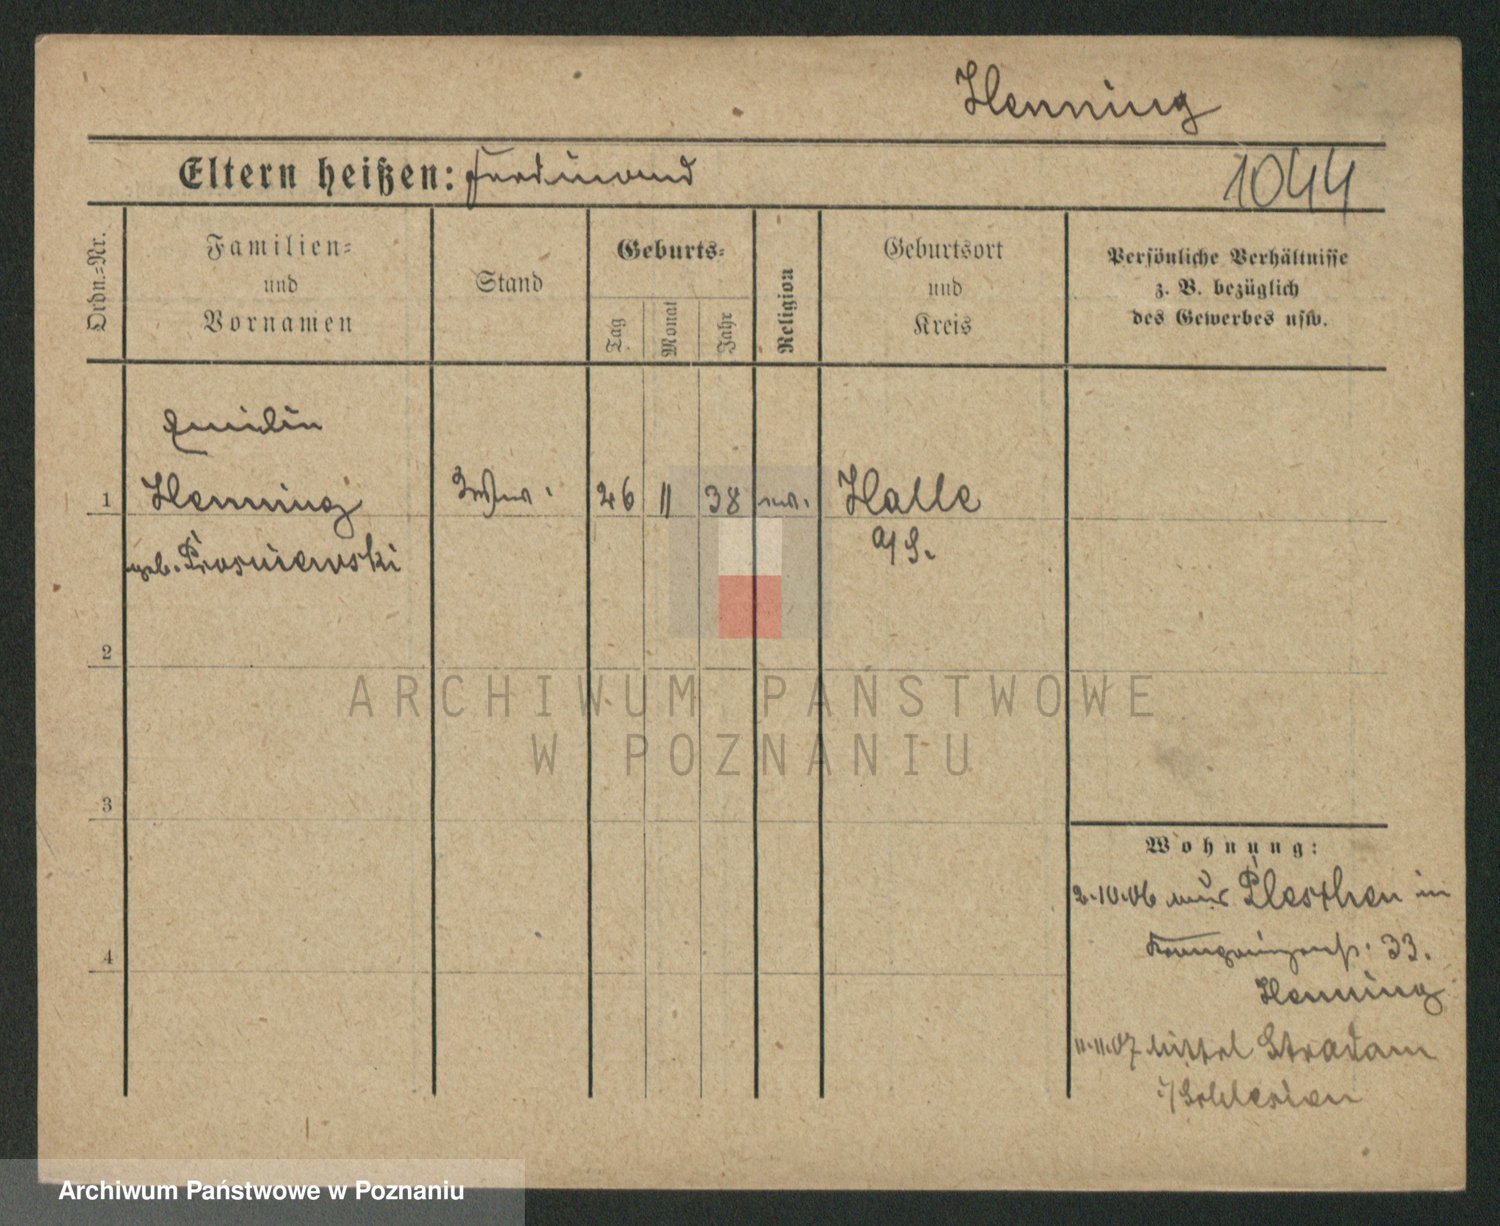 Henning
Eltern heißen: Ferdinand
1044
Ordn.=Nr.
Familien=
und
Vornamen
Stand
Geburts=
Tag
Monat
Jahr
Religion
Geburtsort
und
Kreis
Persönliche Verhältnisse
z. B. bezüglich
des Gewerbes usw.
Emilie
1 Henning Wwe. 26 11 38 ev. Halle
geb. Prosniewski a/S.
2
3
4
Wohnung:
2.10.06 aus Pleschen in
33.
Henning
11.11.07 Mittel Stradam
i/Schlesien
ARCHIWUM PAŃSTWOWE
W POZNANIU
Archiwum Państwowe w Poznaniu